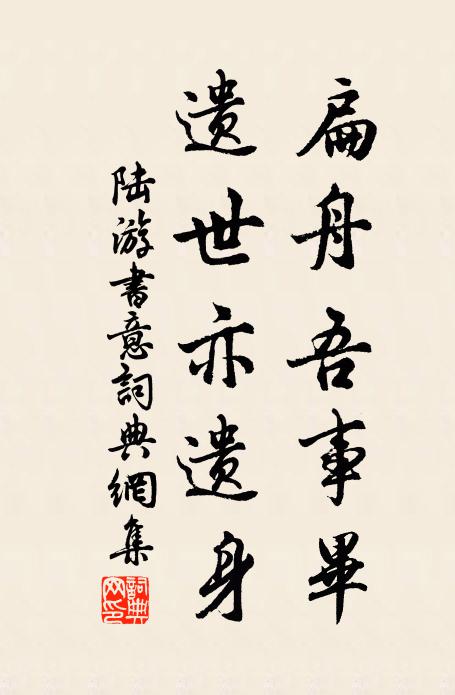 扁舟吾事畢
遺世亦遺身
陸游書意詞典網集
詞典网印